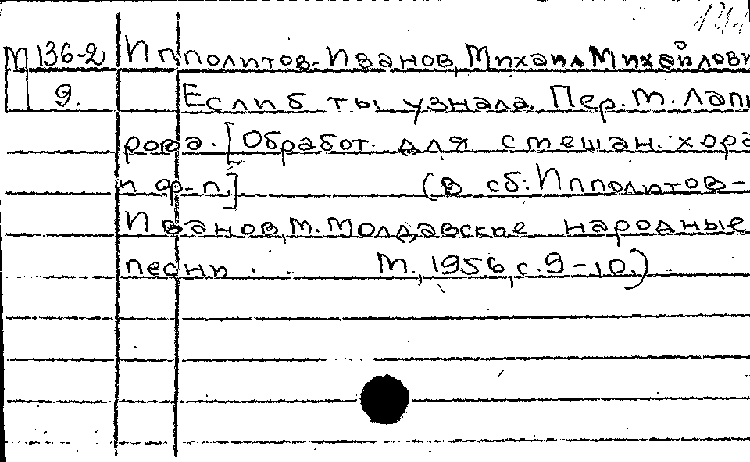 М 136-2 Ипполитов-Иванов, Михаил Михайлови
9. Если б ты узнала. Пер. М. Лапи
рова. [Обработ. для смешан. хора
и ор-п.] (В сб: Ипполитов-
Иванов, М. Молдавские народные
песни. М., 1956, с. 9-10.)